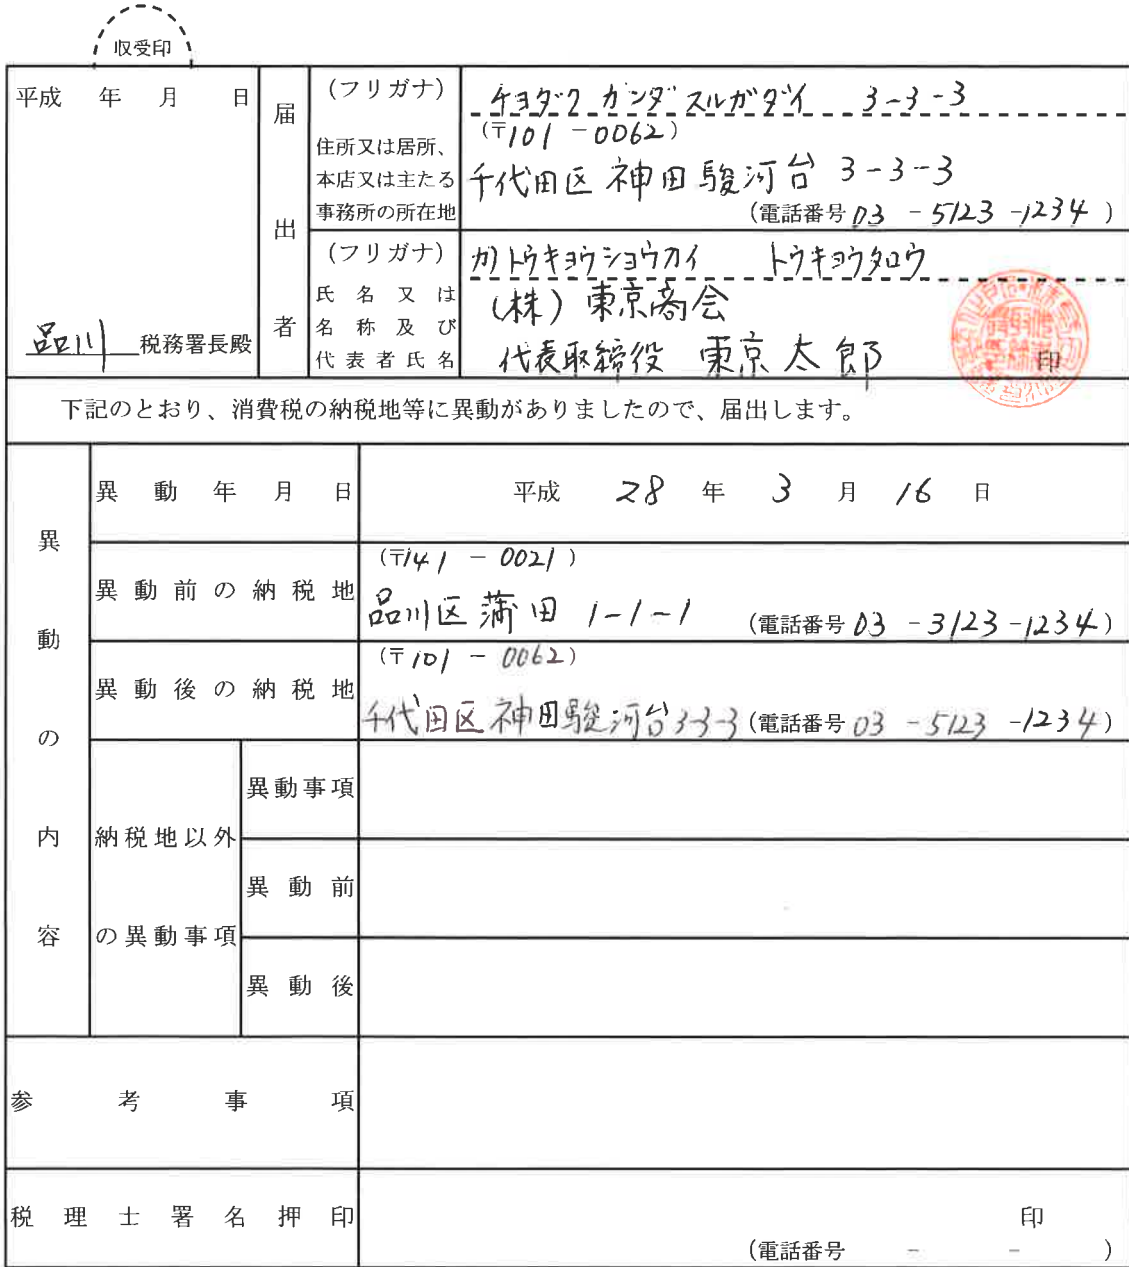 収受印
平成 年 月 日
品川 税務署長殿
届出者
(フリガナ) チヨダク カンダ スルガダイ 3-3-3
住所又は居所、
本店又は主たる
事務所の所在地
(〒101-0062)
千代田区 神田駿河台 3-3-3
(電話番号 03 - 5123 - 1234)
(フリガナ) カ)トウキョウショウカイ トウキョウタロウ
氏名又は
名称及び
代表者氏名
(株)東京商会
代表取締役 東京太郎
印
下記のとおり、消費税の納税地等に異動がありましたので、届出します。
異動の内容
異動年月日 平成 28 年 3 月 16 日
異動前の納税地
(〒141 - 0021)
品川区蒲田 1-1-1 (電話番号 03 - 3123 - 1234)
異動後の納税地
(〒101 - 0062)
千代田区神田駿河台3-3-3 (電話番号 03 - 5123 - 1234)
納税地以外
の異動事項
異動事項
異動前
異動後
参考事項
税理士署名押印
印
(電話番号 - - )